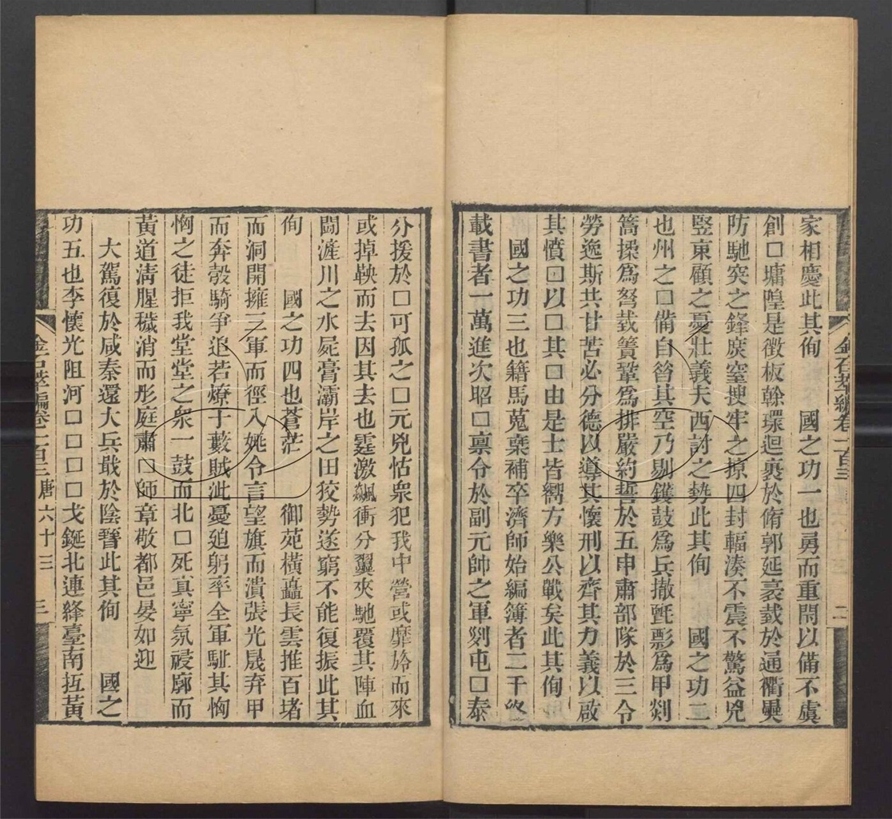 家相慶此其徇　　國之功一也勇而重閉以備不虞
創□墉隍是徵板榦環迴裹於脩郭延袤載於通衢興
防馳突之鋒庚窒㨶牢之掠四封輻湊不震不驚益兇
豎東顧之憂壯義夫西討之勢此其徇　　國之功二
也州之□備自咎其空乃剔鏤鼓爲兵撤氈毳爲甲剡
篙揉爲弩載簣鞏爲排嚴約誓於五申肅部隊於三令
勞逸斯共甘苦必分德以導其懷刑以齊其力義以啟
其憤□以□其□由是士皆嚮方樂公戰矣此其徇
國之功三也籍馬蒐乘補卒濟師始編簿者二千
載書者一萬進次昭□禀令於副元帥之軍剡屯□泰
金石萃編卷一百三　二
分援於□可孤之□元兇怙衆犯我中營或靡旆而來
或掉鞅而去因其去也霆激飆衝分翼夾馳覆其陣血
鬭滻川之水屍膏灞岸之田狡勢遂窮不能復振此其
徇　　國之功四也蒼茫　　御苑橫矗長雲推百堵
而洞開擁三軍而徑入姚令言望旗而潰張光晟弃甲
而奔彀騎爭追若燎于藪賊泚憂廹躬率全軍駈其恟
恟之徒拒我堂堂之衆一鼓而北□死真寧氛祲廓而
黃道淸腥穢消而彤庭肅□師章敬都邑晏如迎
大駕復於咸秦還大兵戢於陰瞀此其徇　　國之
功五也李懷光阻河□□□□戈鋋北連絳臺南抵黃
金石萃編卷一百三唐六十三　三